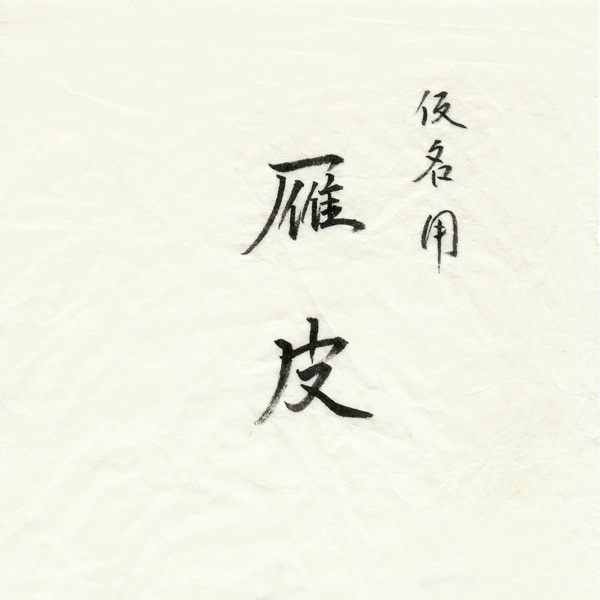 仮名用
雁皮